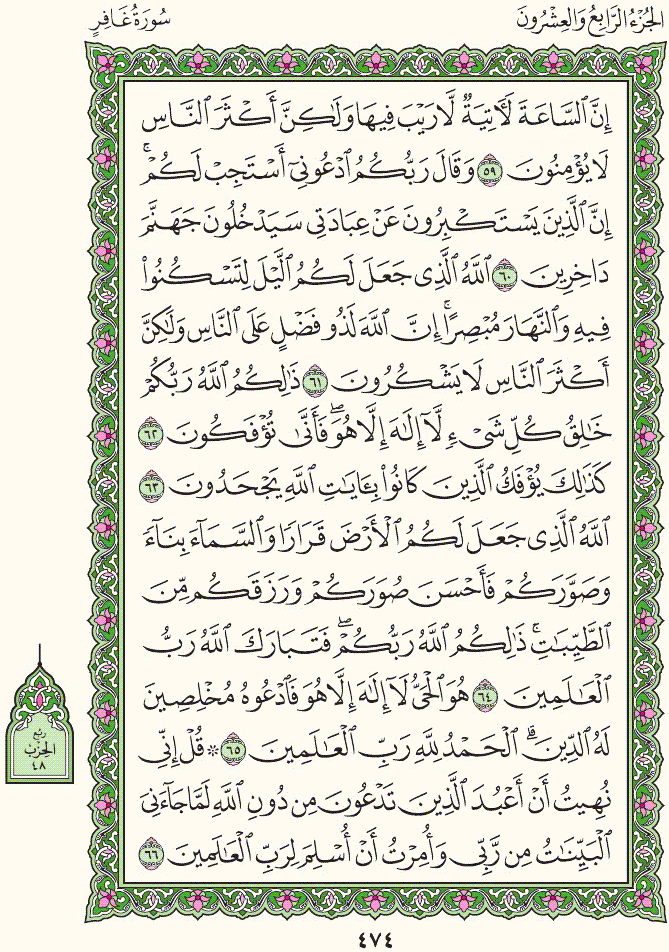 الجُزْءُ الرَّابِعُ وَالعِشْرُونَ
سُورَةُ غَافِرٍ
إِنَّ ٱلسَّاعَةَ لَأٓتِيَةٌ لَّا رَيْبَ فِيهَا وَلَٰكِنَّ أَكْثَرَ ٱلنَّاسِ
لَا يُؤْمِنُونَ ٥٩ وَقَالَ رَبُّكُمُ ٱدْعُونِىٓ أَسْتَجِبْ لَكُمْ ۚ
إِنَّ ٱلَّذِينَ يَسْتَكْبِرُونَ عَنْ عِبَادَتِى سَيَدْخُلُونَ جَهَنَّمَ
دَاخِرِينَ ٦٠ ٱللَّهُ ٱلَّذِى جَعَلَ لَكُمُ ٱلَّيْلَ لِتَسْكُنُوا۟
فِيهِ وَٱلنَّهَارَ مُبْصِرًا ۚ إِنَّ ٱللَّهَ لَذُو فَضْلٍ عَلَى ٱلنَّاسِ وَلَٰكِنَّ
أَكْثَرَ ٱلنَّاسِ لَا يَشْكُرُونَ ٦١ ذَٰلِكُمُ ٱللَّهُ رَبُّكُمْ
خَٰلِقُ كُلِّ شَىْءٍ لَّآ إِلَٰهَ إِلَّا هُوَ ۖ فَأَنَّىٰ تُؤْفَكُونَ ٦٢
كَذَٰلِكَ يُؤْفَكُ ٱلَّذِينَ كَانُوا۟ بِـَٔايَٰتِ ٱللَّهِ يَجْحَدُونَ ٦٣
ٱللَّهُ ٱلَّذِى جَعَلَ لَكُمُ ٱلْأَرْضَ قَرَارًا وَٱلسَّمَآءَ بِنَآءً
وَصَوَّرَكُمْ فَأَحْسَنَ صُوَرَكُمْ وَرَزَقَكُم مِّنَ
ٱلطَّيِّبَٰتِ ۚ ذَٰلِكُمُ ٱللَّهُ رَبُّكُمْ ۖ فَتَبَارَكَ ٱللَّهُ رَبُّ
ٱلْعَٰلَمِينَ ٦٤ هُوَ ٱلْحَىُّ لَآ إِلَٰهَ إِلَّا هُوَ فَٱدْعُوهُ مُخْلِصِينَ
لَهُ ٱلدِّينَ ۗ ٱلْحَمْدُ لِلَّهِ رَبِّ ٱلْعَٰلَمِينَ ٦٥ ۞ قُلْ إِنِّى
نُهِيتُ أَنْ أَعْبُدَ ٱلَّذِينَ تَدْعُونَ مِن دُونِ ٱللَّهِ لَمَّا جَآءَنِىَ
ٱلْبَيِّنَٰتُ مِن رَّبِّى وَأُمِرْتُ أَنْ أُسْلِمَ لِرَبِّ ٱلْعَٰلَمِينَ ٦٦
ربع
الحزب
٤٨
٤٧٤